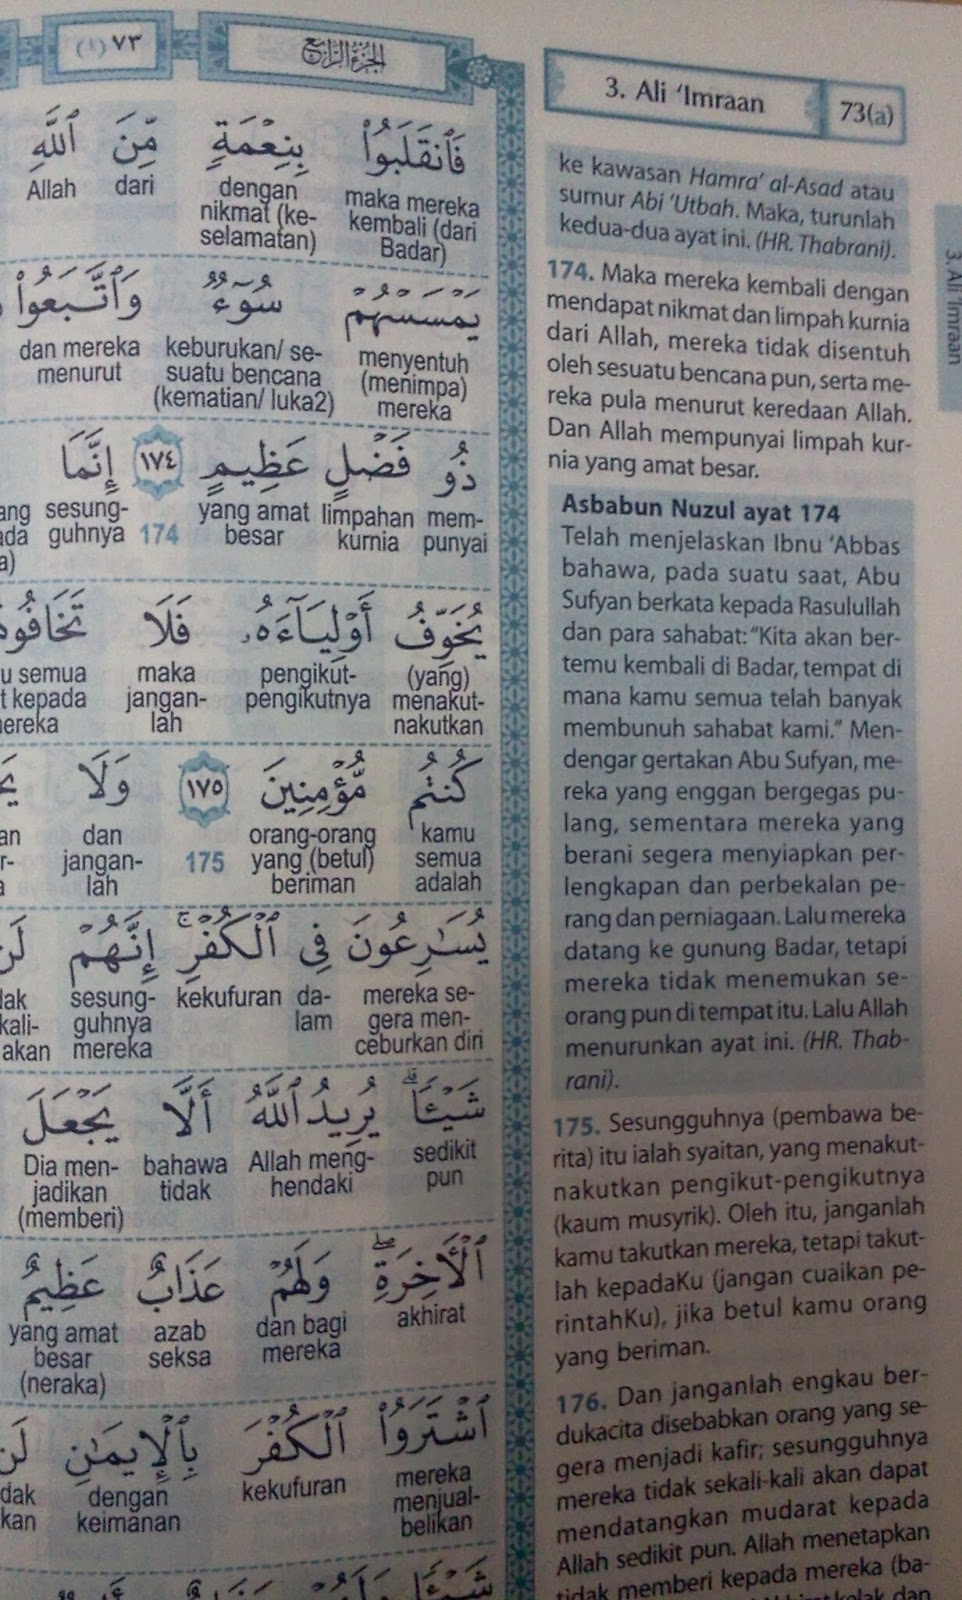 ٧٣ (١)
الجزء الرابع
3. Ali ‘Imraan
73(a)
فَٱنقَلَبُوا۟ بِنِعْمَةٍ مِّنَ ٱللَّهِ
maka mereka kembali (dari Badar) dengan nikmat (ke-selamatan) dari Allah
يَمْسَسْهُمْ سُوٓءٌ وَٱتَّبَعُوا۟
menyentuh (menimpa) mereka keburukan/ se-suatu bencana (kematian/ luka2) dan mereka menurut
ذُو فَضْلٍ عَظِيمٍ ١٧٤ إِنَّمَا
mem-punyai limpahan kurnia yang amat besar 174 sesung-guhnya
يُخَوِّفُ أَوْلِيَآءَهُۥ فَلَا تَخَافُوهُ
(yang) menakut-nakutkan pengikut-pengikutnya maka jangan-lah
كُنتُم مُّؤْمِنِينَ ١٧٥ وَلَا
kamu semua adalah orang-orang yang (betul) beriman 175 dan jangan-lah
يُسَٰرِعُونَ فِى ٱلْكُفْرِ ۚ إِنَّهُمْ لَن
mereka se-gera men-ceburkan diri da-lam kekufuran sesung-guhnya mereka
شَيْـًٔا ۗ يُرِيدُ ٱللَّهُ أَلَّا يَجْعَلَ
sedikit pun Allah meng-hendaki bahawa tidak Dia men-jadikan (memberi)
ٱلْـَٔاخِرَةِ ۖ وَلَهُمْ عَذَابٌ عَظِيمٌ
akhirat dan bagi mereka azab seksa yang amat besar (neraka)
ٱشْتَرَوُا۟ ٱلْكُفْرَ بِٱلْإِيمَٰنِ لَن
mereka menjual-belikan kekufuran dengan keimanan
ke kawasan Hamra’ al-Asad atau
sumur Abi ’Utbah. Maka, turunlah
kedua-dua ayat ini. (HR. Thabrani).
174. Maka mereka kembali dengan
mendapat nikmat dan limpah kurnia
dari Allah, mereka tidak disentuh
oleh sesuatu bencana pun, serta me-
reka pula menurut keredaan Allah.
Dan Allah mempunyai limpah kur-
nia yang amat besar.
Asbabun Nuzul ayat 174
Telah menjelaskan Ibnu ‘Abbas
bahawa, pada suatu saat, Abu
Sufyan berkata kepada Rasulullah
dan para sahabat: “Kita akan ber-
temu kembali di Badar, tempat di
mana kamu semua telah banyak
membunuh sahabat kami.” Men-
dengar gertakan Abu Sufyan, me-
reka yang enggan bergegas pu-
lang, sementara mereka yang
berani segera menyiapkan per-
lengkapan dan perbekalan pe-
rang dan perniagaan. Lalu mereka
datang ke gunung Badar, tetapi
mereka tidak menemukan se-
orang pun di tempat itu. Lalu Allah
menurunkan ayat ini. (HR. Thab-
rani).
175. Sesungguhnya (pembawa be-
rita) itu ialah syaitan, yang menakut-
nakutkan pengikut-pengikutnya
(kaum musyrik). Oleh itu, janganlah
kamu takutkan mereka, tetapi takut-
lah kepadaKu (jangan cuaikan pe-
rintahKu), jika betul kamu orang
yang beriman.
176. Dan janganlah engkau ber-
dukacita disebabkan orang yang se-
gera menjadi kafir; sesungguhnya
mereka tidak sekali-kali akan dapat
mendatangkan mudarat kepada
Allah sedikit pun. Allah menetapkan
tidak memberi kepada mereka (ba-
3. Ali ‘Imraan